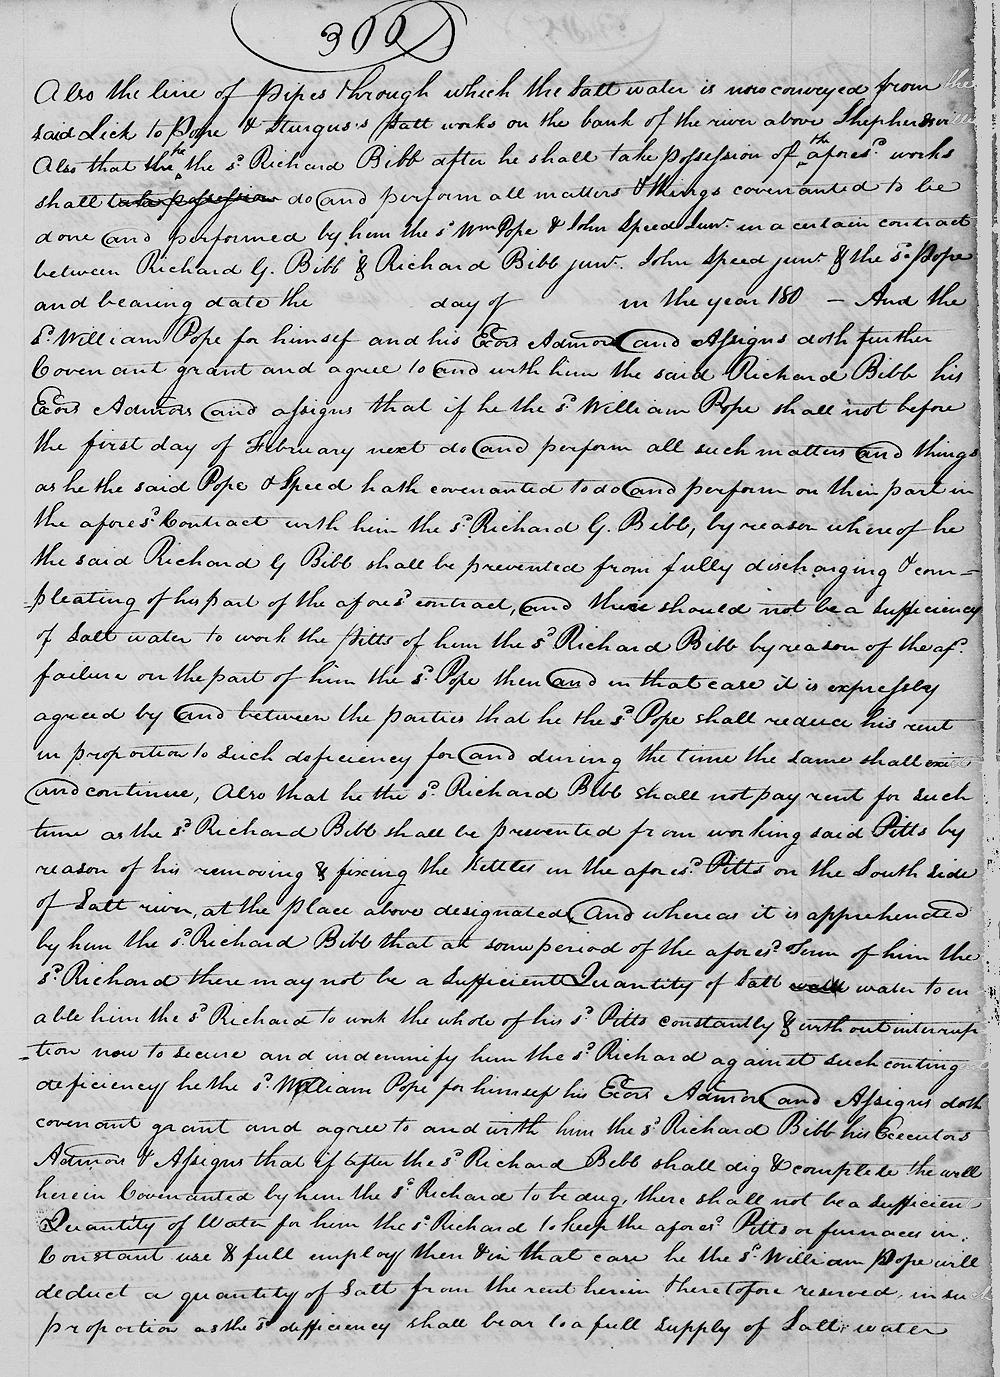 300
Also the line of pipes through which the Salt water is now conveyed from the
said Lick to Pope & Sturgus's Salt works on the bank of the river above Shepherdsville
Also that the the sd. Richard Bibb after he shall take possession of the aforesd. works
shall take possession do and perform all matters & things covenanted to be
done and performed by him the sd. Wm Pope & John Speed Junr. in a certain contract
between Richard G. Bibb & Richard Bibb junr. John Speed junr & the sd. Pope
and bearing date the day of in the year 180 – And the
sd. William Pope for himself and his Exors Admors and Assigns doth further
Covenant grant and agree to and with him the said Richard Bibb his
Exors Admors and assigns that if he the sd. William Pope shall not before
the first day of February next do and perform all such matters and things
as he the said Pope & Speed hath covenanted to do and perform on their part in
the aforesd. Contract with him the sd. Richard G. Bibb, by reason whereof he
the said Richard G Bibb shall be prevented from fully discharging & com=
=pleating of his part of the aforesd contract, and there should not be a sufficiency
of Salt water to work the pitts of him the sd. Richard Bibb by reason of the afd.
failure on the part of him the sd. Pope then and in that case it is expressly
agreed by and between the parties that he the sd. Pope shall reduce his rent
in proportion to such deficiency for and during the time the same shall exist
and continue, Also that he the sd. Richard Bibb shall not pay rent for such
time as the sd. Richard Bibb shall be prevented from working said Pitts by
reason of his removing & fixing the Kettles in the aforesd. Pitts on the South side
of Salt river, at the place above designated, and whereas it is apprehended
by him the sd. Richard Bibb that at some period of the aforesd. Term of him the
sd. Richard there may not be a sufficient Quantity of Salt well water to en
able him the sd. Richard to work the whole of his sd. Pitts constantly & without interrup
=tion now to secure and indemnify him the sd. Richard against such conting
deficiency he the sd. William Pope for himself his Exors Admors and Assigns doth
covenant grant and agree to and with him the sd. Richard Bibb his Executors
Admors & Assigns that if after the sd. Richard Bibb shall dig & complete the well
herein Covenanted by him the sd. Richard to be dug, there shall not be a sufficient
Quantity of Water for him the sd. Richard to keep the aforesd. Pitts or furnaces in
Constant use & full employ then & in that case he the sd. William Pope will
deduct a quantity of Salt from the rent herein theretofore reserved, in such
proportion as the sd. defficiency shall bear to a full supply of Salt water